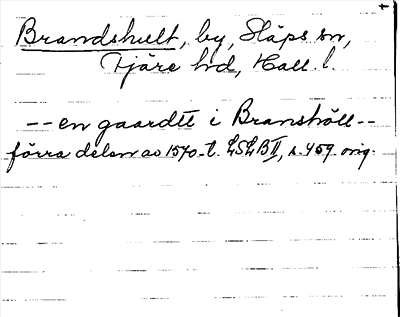 Brandshult, by, Släps sn,
Fjäre hd, Hall. l.
-- en gaardtt i Branshôll --
förra delen av 1570-t. LSLB II, s. 459. orig.